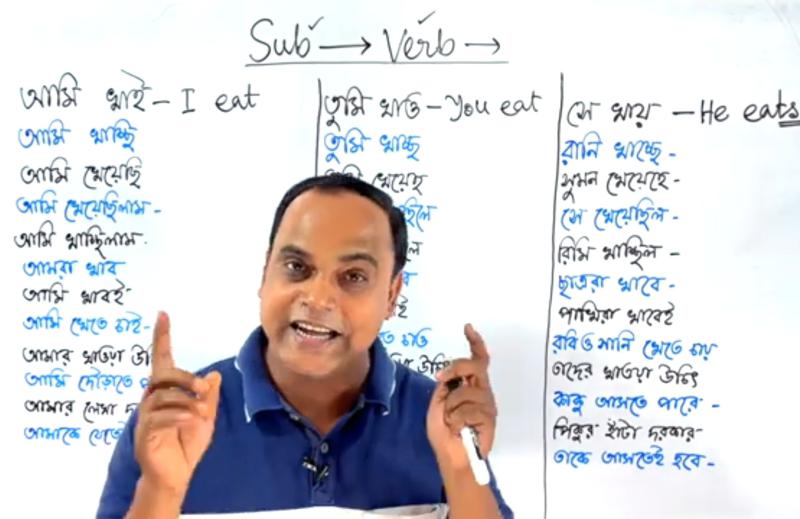 Sub → Verb →
আমি খাই – I eat
আমি খাচ্ছি
আমি খেয়েছি
আমি খেয়েছিলাম -
আমি খাচ্ছিলাম.
আমরা খাব
আমি খাবই
আমি খেতে চাই -
আমার খাওয়া
আমি দৌড়াতে
আমার লেখা
আমাকে
তুমি খাও – You eat
তুমি খাচ্ছ
খেয়েছ
সে খায় – He eats
রানি খাচ্ছে -
সুমন খেয়েছে -
সে খেয়েছিল -
রিমি খাচ্ছিল -
ছাত্ররা খাবে -
পাখিরা খাবেই
রবি ও মানি খেতে চায়
তাদের খাওয়া উচিৎ
কাকু আসতে পারে -
পিঙ্কুর হাঁটা দরকার -
তাকে আসতেই হবে -